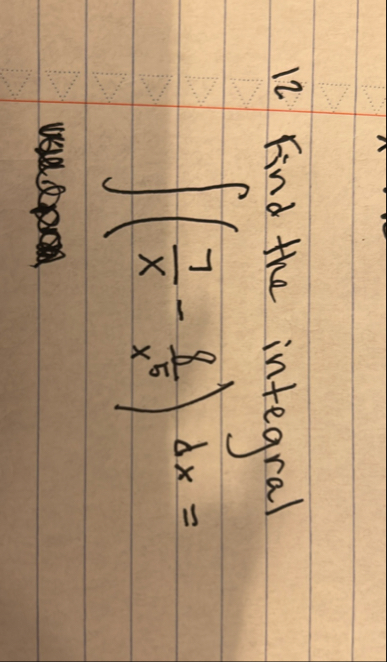 12 Find the integral
∫ ( 7/x - 8/x⁵ ) dx =